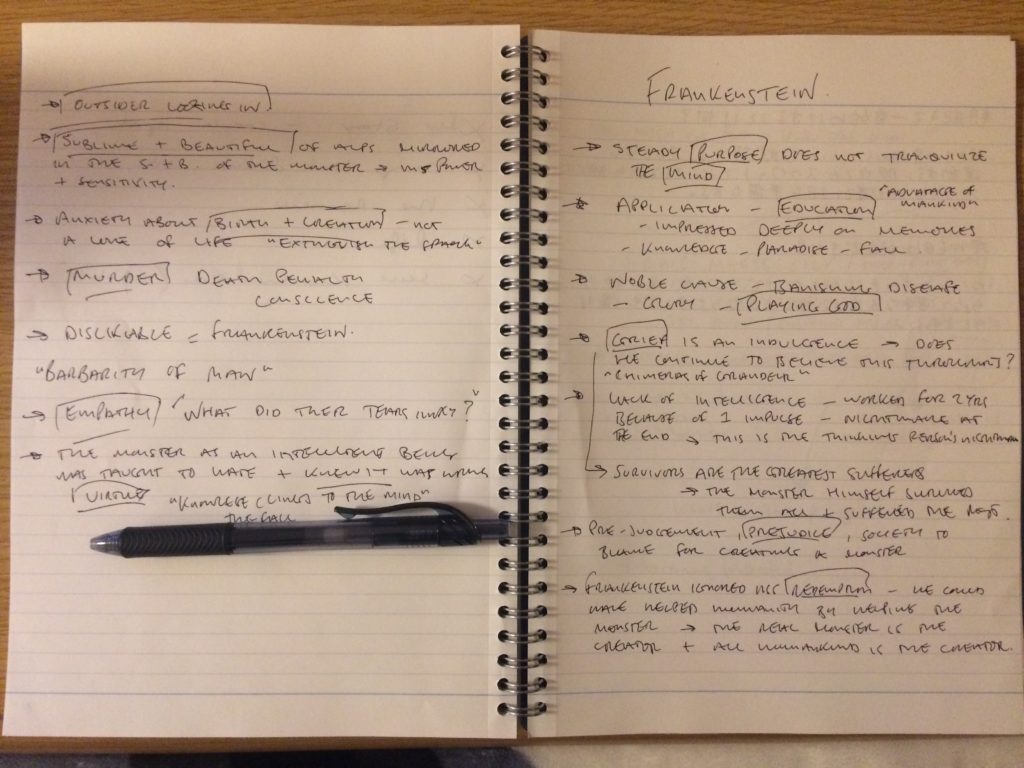 → OUTSIDER LOOKING IN
→ SUBLIME + BEAUTIFUL OF ALPS MIRRORED
IN THE S + B OF THE MONSTER → HIS POWER
+ SENSITIVITY.
→ ANXIETY ABOUT BIRTH + CREATION – NOT
A LOVE OF LIFE "EXTINGUISH THE SPARK"
→ MURDER DEATH PENALTY
CONSCIENCE
→ DISLIKABLE = FRANKENSTEIN.
"BARBARITY OF MAN"
→ EMPATHY "WHAT DID THEIR TEARS IMPLY?"
→ THE MONSTER AS AN INTELLIGENT BEING
WAS TAUGHT TO HATE + KNEW IT WAS WRONG
VIRTUE "KNOWLEGE CLINGS TO THE MIND"
THE FALL
FRANKENSTEIN.
→ STEADY PURPOSE DOES NOT TRANQUILIZE
THE MIND
→ APPLICATION – EDUCATION "ADVANTAGE OF
MANKIND"
– IMPRESSED DEEPLY ON MEMORIES
– KNOWLEDGE – PARADISE – FALL
→ NOBLE CAUSE – BANISHING DISEASE
– GLORY – PLAYING GOD
→ GRIEF IS AN INDULGENCE → DOES
HE CONTINUE TO BELIEVE THIS THROUGHOUT?
"CHIMERAS OF GRANDEUR"
→ LACK OF INTELLIGENCE – WORKED FOR 2 YRS
BECAUSE OF 1 IMPULSE – NIGHTMARE AT
THE END → THIS IS THE THINKING PERSON'S NIGHTMARE
→ SURVIVORS ARE THE GREATEST SUFFERERS
→ THE MONSTER HIMSELF SURVIVED
THEM ALL + SUFFERED THE MOST.
→ PRE-JUDGEMENT, PREJUDICE, SOCIETY TO
BLAME FOR CREATING A MONSTER
→ FRANKENSTEIN IGNORED HIS REDEMPTION – HE COULD
HAVE HELPED HUMANITY BY HELPING THE
MONSTER → THE REAL MONSTER IS THE
CREATOR + ALL HUMANKIND IS THE CREATOR.